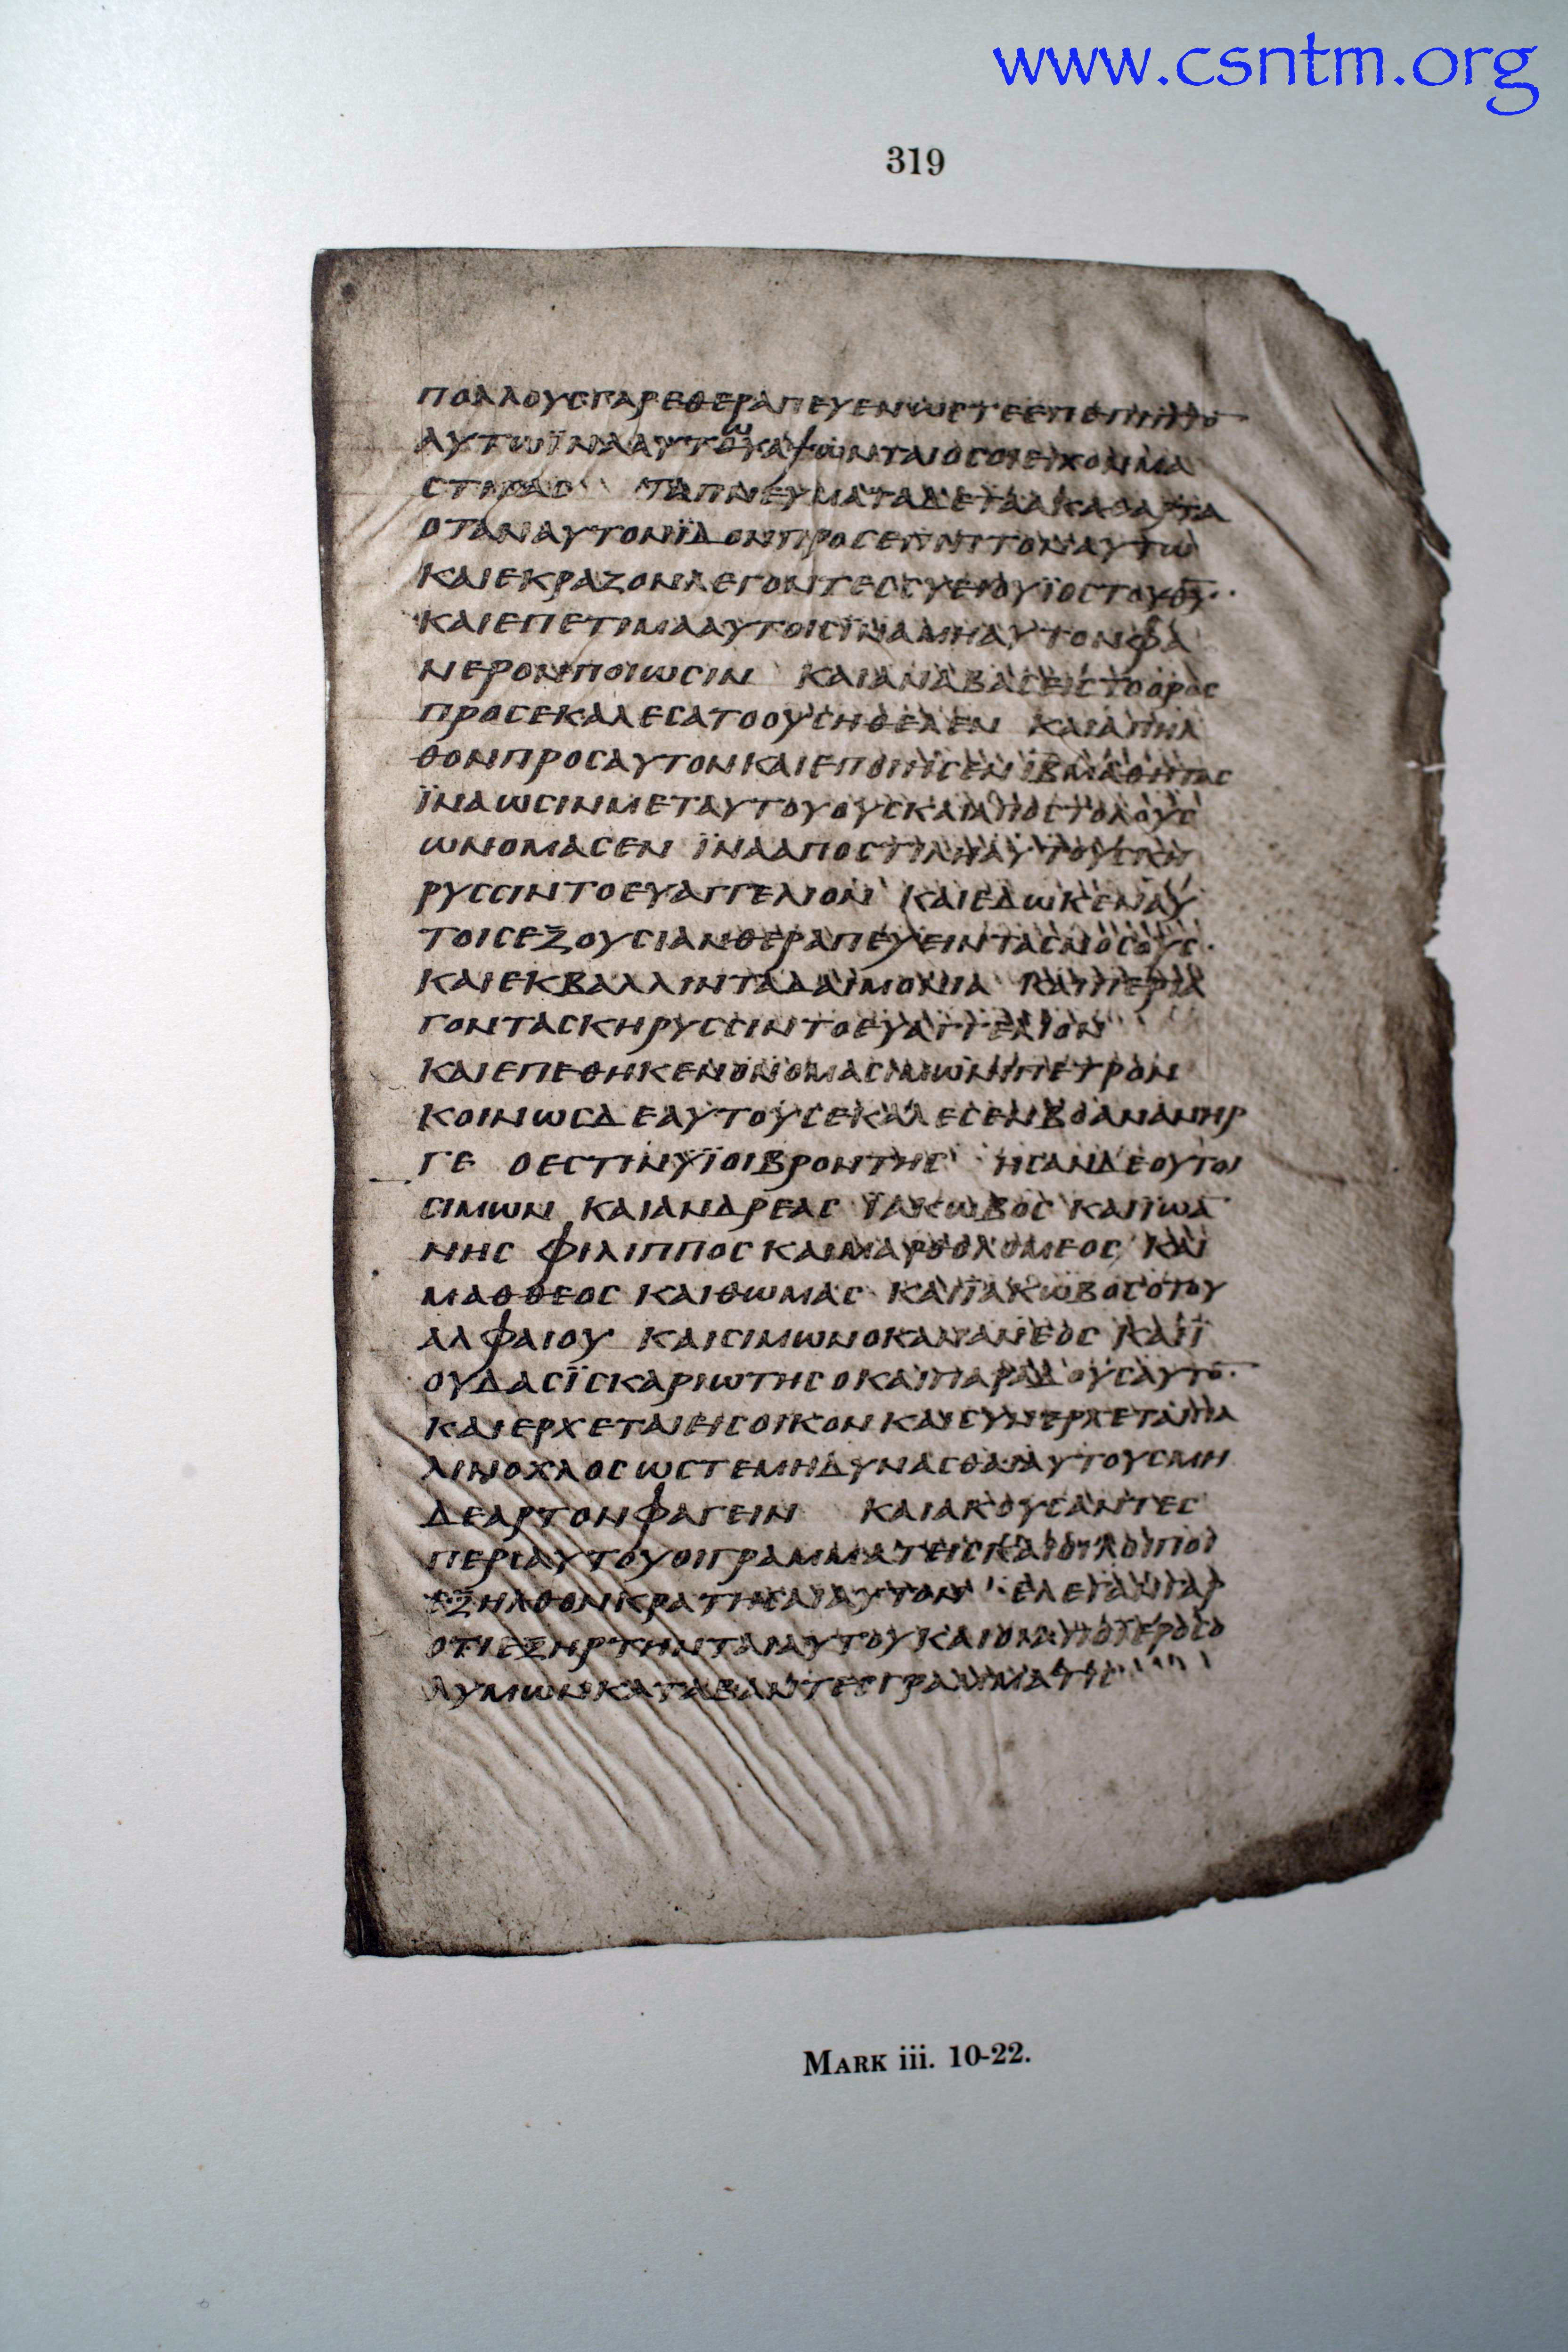 www.csntm.org
319
ΠΟΛΛΟΥСΓΑΡΕΘΕΡΑΠΕΥΕΝωСΤΕΕΠΙΠΙΠΤΙ
ΑΥΤωΪΝΑΑΥΤΟΥΑΨωΝΤΑΙΟСΟΙΕΙΧΟΝΜΑ
СΤΙΓΑС ΤΑΠΝΕΥΜΑΤΑΔΕΤΑΑΚΑΘΑΡΤΑ
ΟΤΑΝΑΥΤΟΝΪΔΟΝΠΡΟСΕΠΙΠΤΟΝΑΥΤω
ΚΑΙΕΚΡΑΖΟΝΛΕΓΟΝΤΕССΥΕΙΟΥΪΟСΤΟΥΘΥ
ΚΑΙΕΠΕΤΙΜΑΑΥΤΟΙСΪΝΑΜΗΑΥΤΟΝΦΑ
ΝΕΡΟΝΠΟΙωСΙΝ ΚΑΙΑΝΑΒΑСΕΙСΤΟΟΡΟС
ΠΡΟСΕΚΑΛΕСΑΤΟΟΥСΗΘΕΛΕΝ ΚΑΙΑΠΗΛ
ΘΟΝΠΡΟСΑΥΤΟΝΚΑΙΕΠΟΙΗСΕΝΙΒΜΑΘΗΤΑС
ΪΝΑωСΙΝΜΕΤΑΥΤΟΥΟΥСΚΑΙΑΠΟСΤΟΛΟΥС
ωΝΟΜΑСΕΝ ΪΝΑΑΠΟСΤΙΛΗΑΥΤΟΥСΚΗ
ΡΥССΙΝΤΟΕΥΑΓΓΕΛΙΟΝ ΚΑΙΕΔωΚΕΝΑΥ
ΤΟΙСΕΞΟΥСΙΑΝΘΕΡΑΠΕΥΕΙΝΤΑСΝΟСΟΥС·
ΚΑΙΕΚΒΑΛΛΙΝΤΑΔΑΙΜΟΝΙΑ ΚΑΙΠΕΡΙΑ
ΓΟΝΤΑСΚΗΡΥССΙΝΤΟΕΥΑΓΓΕΛΙΟΝ
ΚΑΙΕΠΕΘΗΚΕΝΟΝΟΜΑСΙΜωΝΙΠΕΤΡΟΝ
ΚΟΙΝωСΔΕΑΥΤΟΥСΕΚΑΛΕСΕΝΒΟΑΝΑΝΗΡ
ΓΕ ΟΕСΤΙΝΥΪΟΙΒΡΟΝΤΗС ΗСΑΝΔΕΟΥΤΟΙ
СΙΜωΝ ΚΑΙΑΝΔΡΕΑС ΪΑΚωΒΟС ΚΑΙΪωΑ
ΝΗС ΦΙΛΙΠΠΟС ΚΑΙΜΑΡΘΟΛΟΜΕΟС ΚΑΙ
ΜΑΘΘΕΟС ΚΑΙΘωΜΑС ΚΑΙΪΑΚωΒΟСΟΤΟΥ
ΑΛΦΑΙΟΥ ΚΑΙСΙΜωΝΟΚΑΝΑΝΕΟС ΚΑΙΪ
ΟΥΔΑСΪСΚΑΡΙωΤΗС ΟΚΑΙΠΑΡΑΔΟΥСΑΥΤΟ·
ΚΑΙΕΡΧΕΤΑΙΕΙСΟΙΚΟΝΚΑΙСΥΝΕΡΧΕΤΑΙΠΑ
ΛΙΝΟΧΛΟСωСΤΕΜΗΔΥΝΑСΘΑΙΑΥΤΟΥСΜΗ
ΔΕΑΡΤΟΝΦΑΓΕΙΝ ΚΑΙΑΚΟΥСΑΝΤΕС
ΠΕΡΙΑΥΤΟΥΟΙΓΡΑΜΜΑΤΕΙСΚΑΙΟΙΛΟΙΠΟΙ
ΕΞΗΛΘΟΝΚΡΑΤΗСΑΙΑΥΤΟΝ ΕΛΕΓΑΝΓΑΡ
ΟΤΙΕΞΗΡΤΗΝΤΑΙΑΥΤΟΥΚΑΙΟΙΑΠΟΙΕΡΟСΟ
ΛΥΜωΝΚΑΤΑΒΑΝΤΕСΓΡΑΜΜΑΤΙ
MARK iii. 10-22.